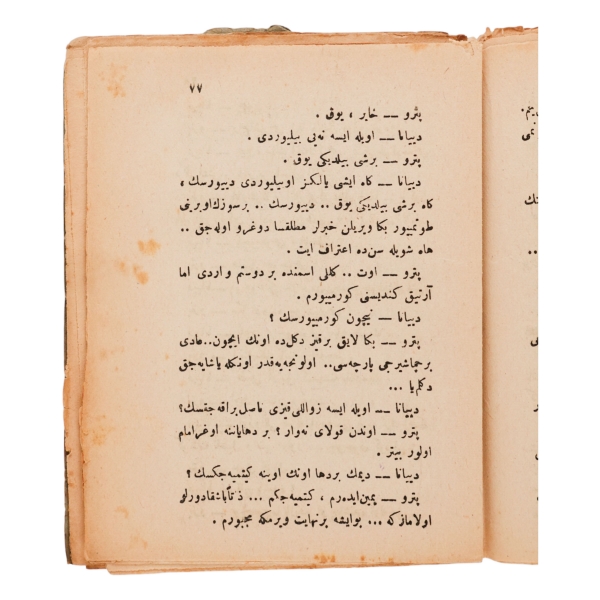 ٧٧
پترو — خاير ، يوق .
دييانا — اويله ايسه نه‌يى بيليوردى .
پترو — برشى بيلديكى يوق .
دييانا — كاه ايشى يالكز اوبيليوردى دييورسك ،
كاه برشى بيلديكى يوق .. دييورسك .. برسوزك اوبرينى
طوتميور بكا ويريلن خبرلر مطلقا دوغرو اوله‌جق ..
هاه شويله سن‌ده اعتراف ايت .
پترو — اوت .. كللى اسمنده بر دوستم واردى اما
آرتيق كنديسنى كورميورم .
دييانا — نيچون كورميورسك ؟
پترو — بكا لايق برقيز دكل‌ده اونك ايچون.. عادى
برچماشيرجى پارچه‌سى.. اولونجه‌يه‌قدر اونكله ياشايه‌جق
دكلم‌يا ...
دييانا — اويله ايسه زواللى قيزى ناصل براقه‌جقسك؟
پترو — اوندن قولاى نه‌وار ؟ بر دها ياننه اوغرامام
اولور بيتر .
دييانا — ديمك بردها اونك اوينه كيتميه‌جكسك ؟
پترو — يمين ايده‌رم ، كيتميه‌جكم ... ذاتاً باشقا دورلو
اولامازكه ... بوايشه برنهايت ويرمكه مجبورم .